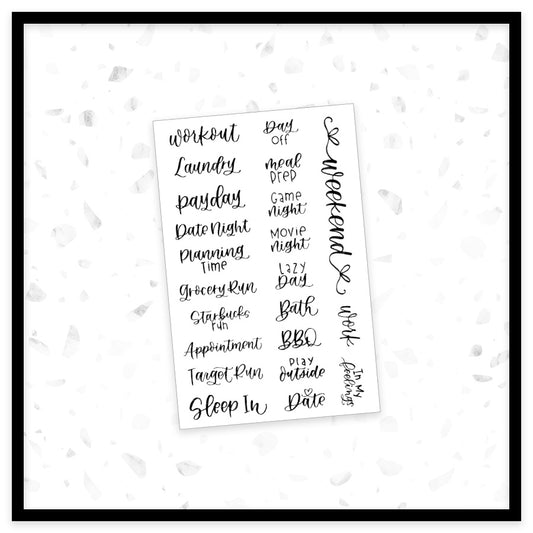 workout
Laundry
payday
Date Night
Planning
Time
Grocery Run
Starbucks
run
Appointment
Target Run
Sleep In
Day
off
meal
prep
Game
night
MOVIE
night
LAZY
Day
Bath
BBQ
play
outside
Date
weekend
work
In My
feelings